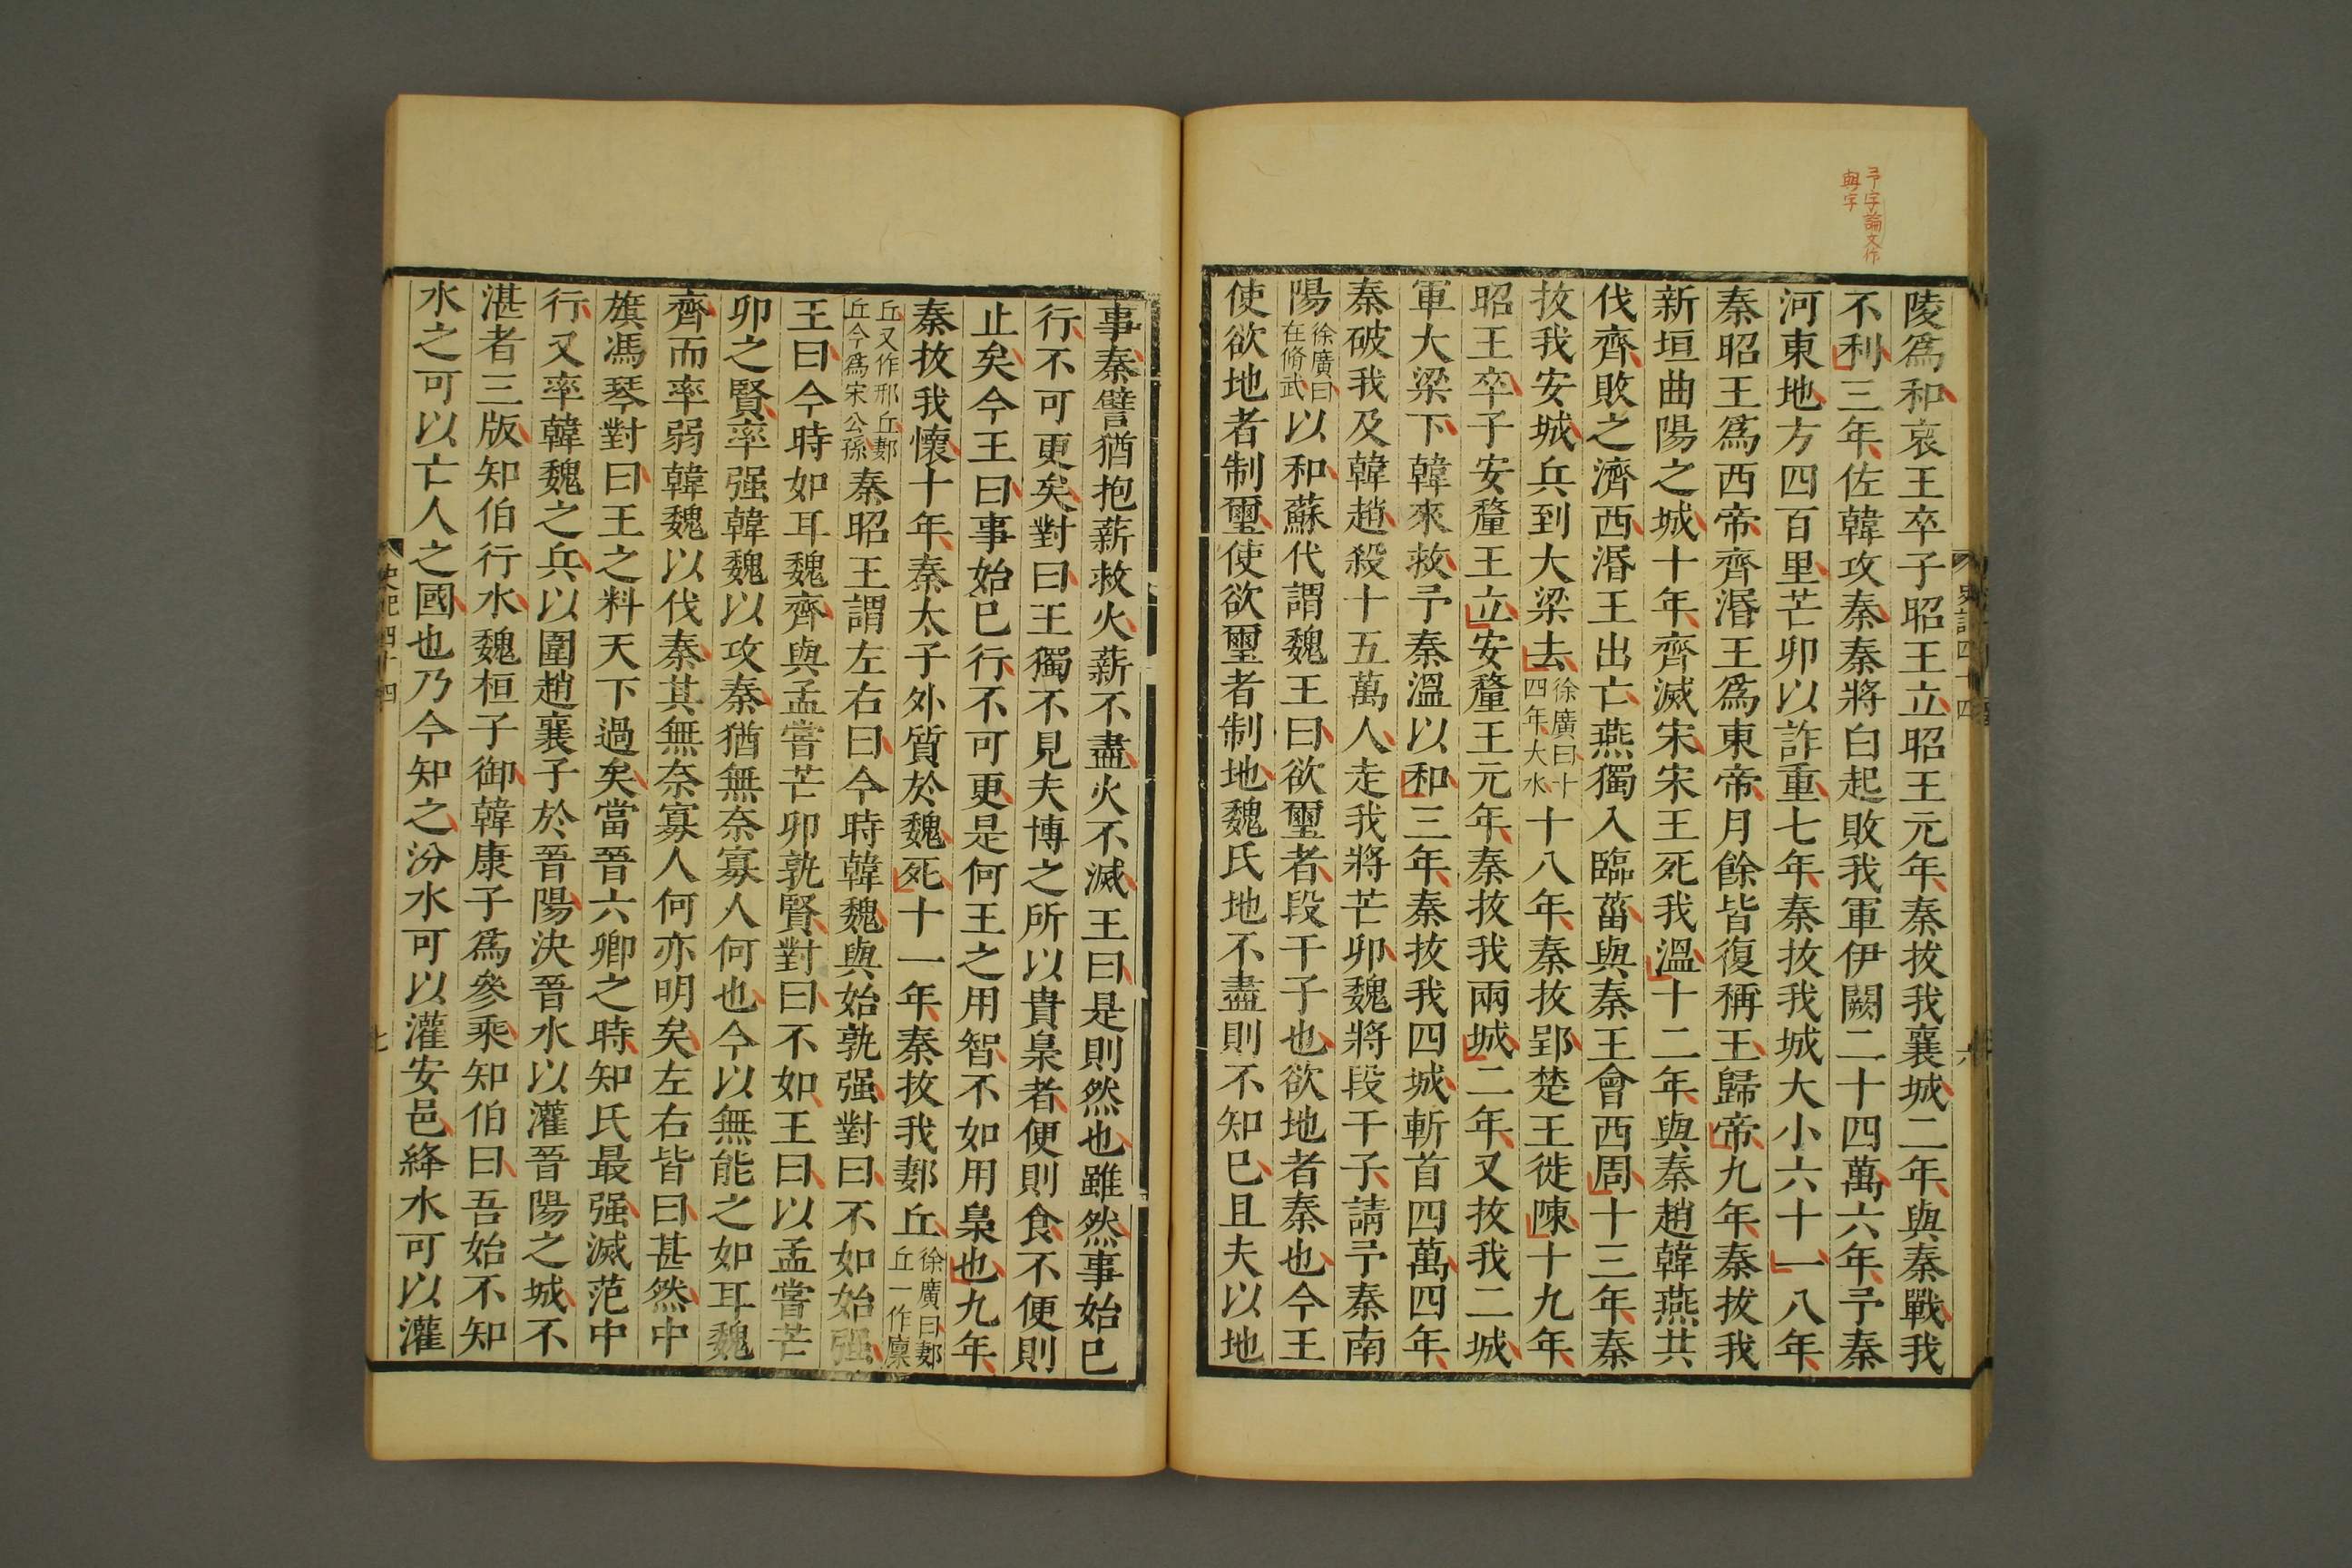 予字論文作
與字
陵爲和哀王卒子昭王立昭王元年秦拔我襄城二年與秦戰我
不利三年佐韓攻秦秦將白起敗我軍伊闕二十四萬六年予秦
河東地方四百里芒卯以詐重七年秦拔我城大小六十一八年
秦昭王爲西帝齊湣王爲東帝月餘皆復稱王歸帝九年秦拔我
新垣曲陽之城十年齊滅宋宋王死我溫十二年與秦趙韓燕共
伐齊敗之濟西湣王出亡燕獨入臨菑與秦王會西周十三年秦
拔我安城兵到大梁去徐廣曰十四年大水十八年秦拔郢楚王徙陳十九年
昭王卒子安釐王立安釐王元年秦拔我兩城二年又拔我二城
軍大梁下韓來救予秦溫以和三年秦拔我四城斬首四萬四年
秦破我及韓趙殺十五萬人走我將芒卯魏將段干子請予秦南
陽徐廣曰在脩武以和蘇代謂魏王曰欲璽者段干子也欲地者秦也今王
使欲地者制璽使欲璽者制地魏氏地不盡則不知已且夫以地
史記四十四
六
事秦譬猶抱薪救火薪不盡火不滅王曰是則然也雖然事始已
行不可更矣對曰王獨不見夫博之所以貴梟者便則食不便則
止矣今王曰事始已行不可更是何王之用智不如用梟也九年
秦拔我懷十年秦太子外質於魏死十一年秦拔我郪丘徐廣曰郪丘一作廩
丘又作邢丘郪丘今爲宋公孫秦昭王謂左右曰今時韓魏與始孰强對曰不如始强
王曰今時如耳魏齊與孟嘗芒卯孰賢對曰不如王曰以孟嘗芒
卯之賢率强韓魏以攻秦猶無奈寡人何也今以無能之如耳魏
齊而率弱韓魏以伐秦其無奈寡人何亦明矣左右皆曰甚然中
旗馮琴對曰王之料天下過矣當晉六卿之時知氏最强滅范中
行又率韓魏之兵以圍趙襄子於晉陽決晉水以灌晉陽之城不
湛者三版知伯行水魏桓子御韓康子爲參乘知伯曰吾始不知
水之可以亡人之國也乃今知之汾水可以灌安邑絳水可以灌
史記四十四
七